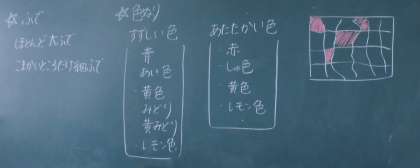 ☆ふで
ほとんど太ふで
こまかいところだけ細ふで
☆色ぬり
すずしい色
青
あい色
・黄色
みどり
黄みどり
・レモン色
あたたかい色
・赤
・しゅ色
・黄色
・レモン色